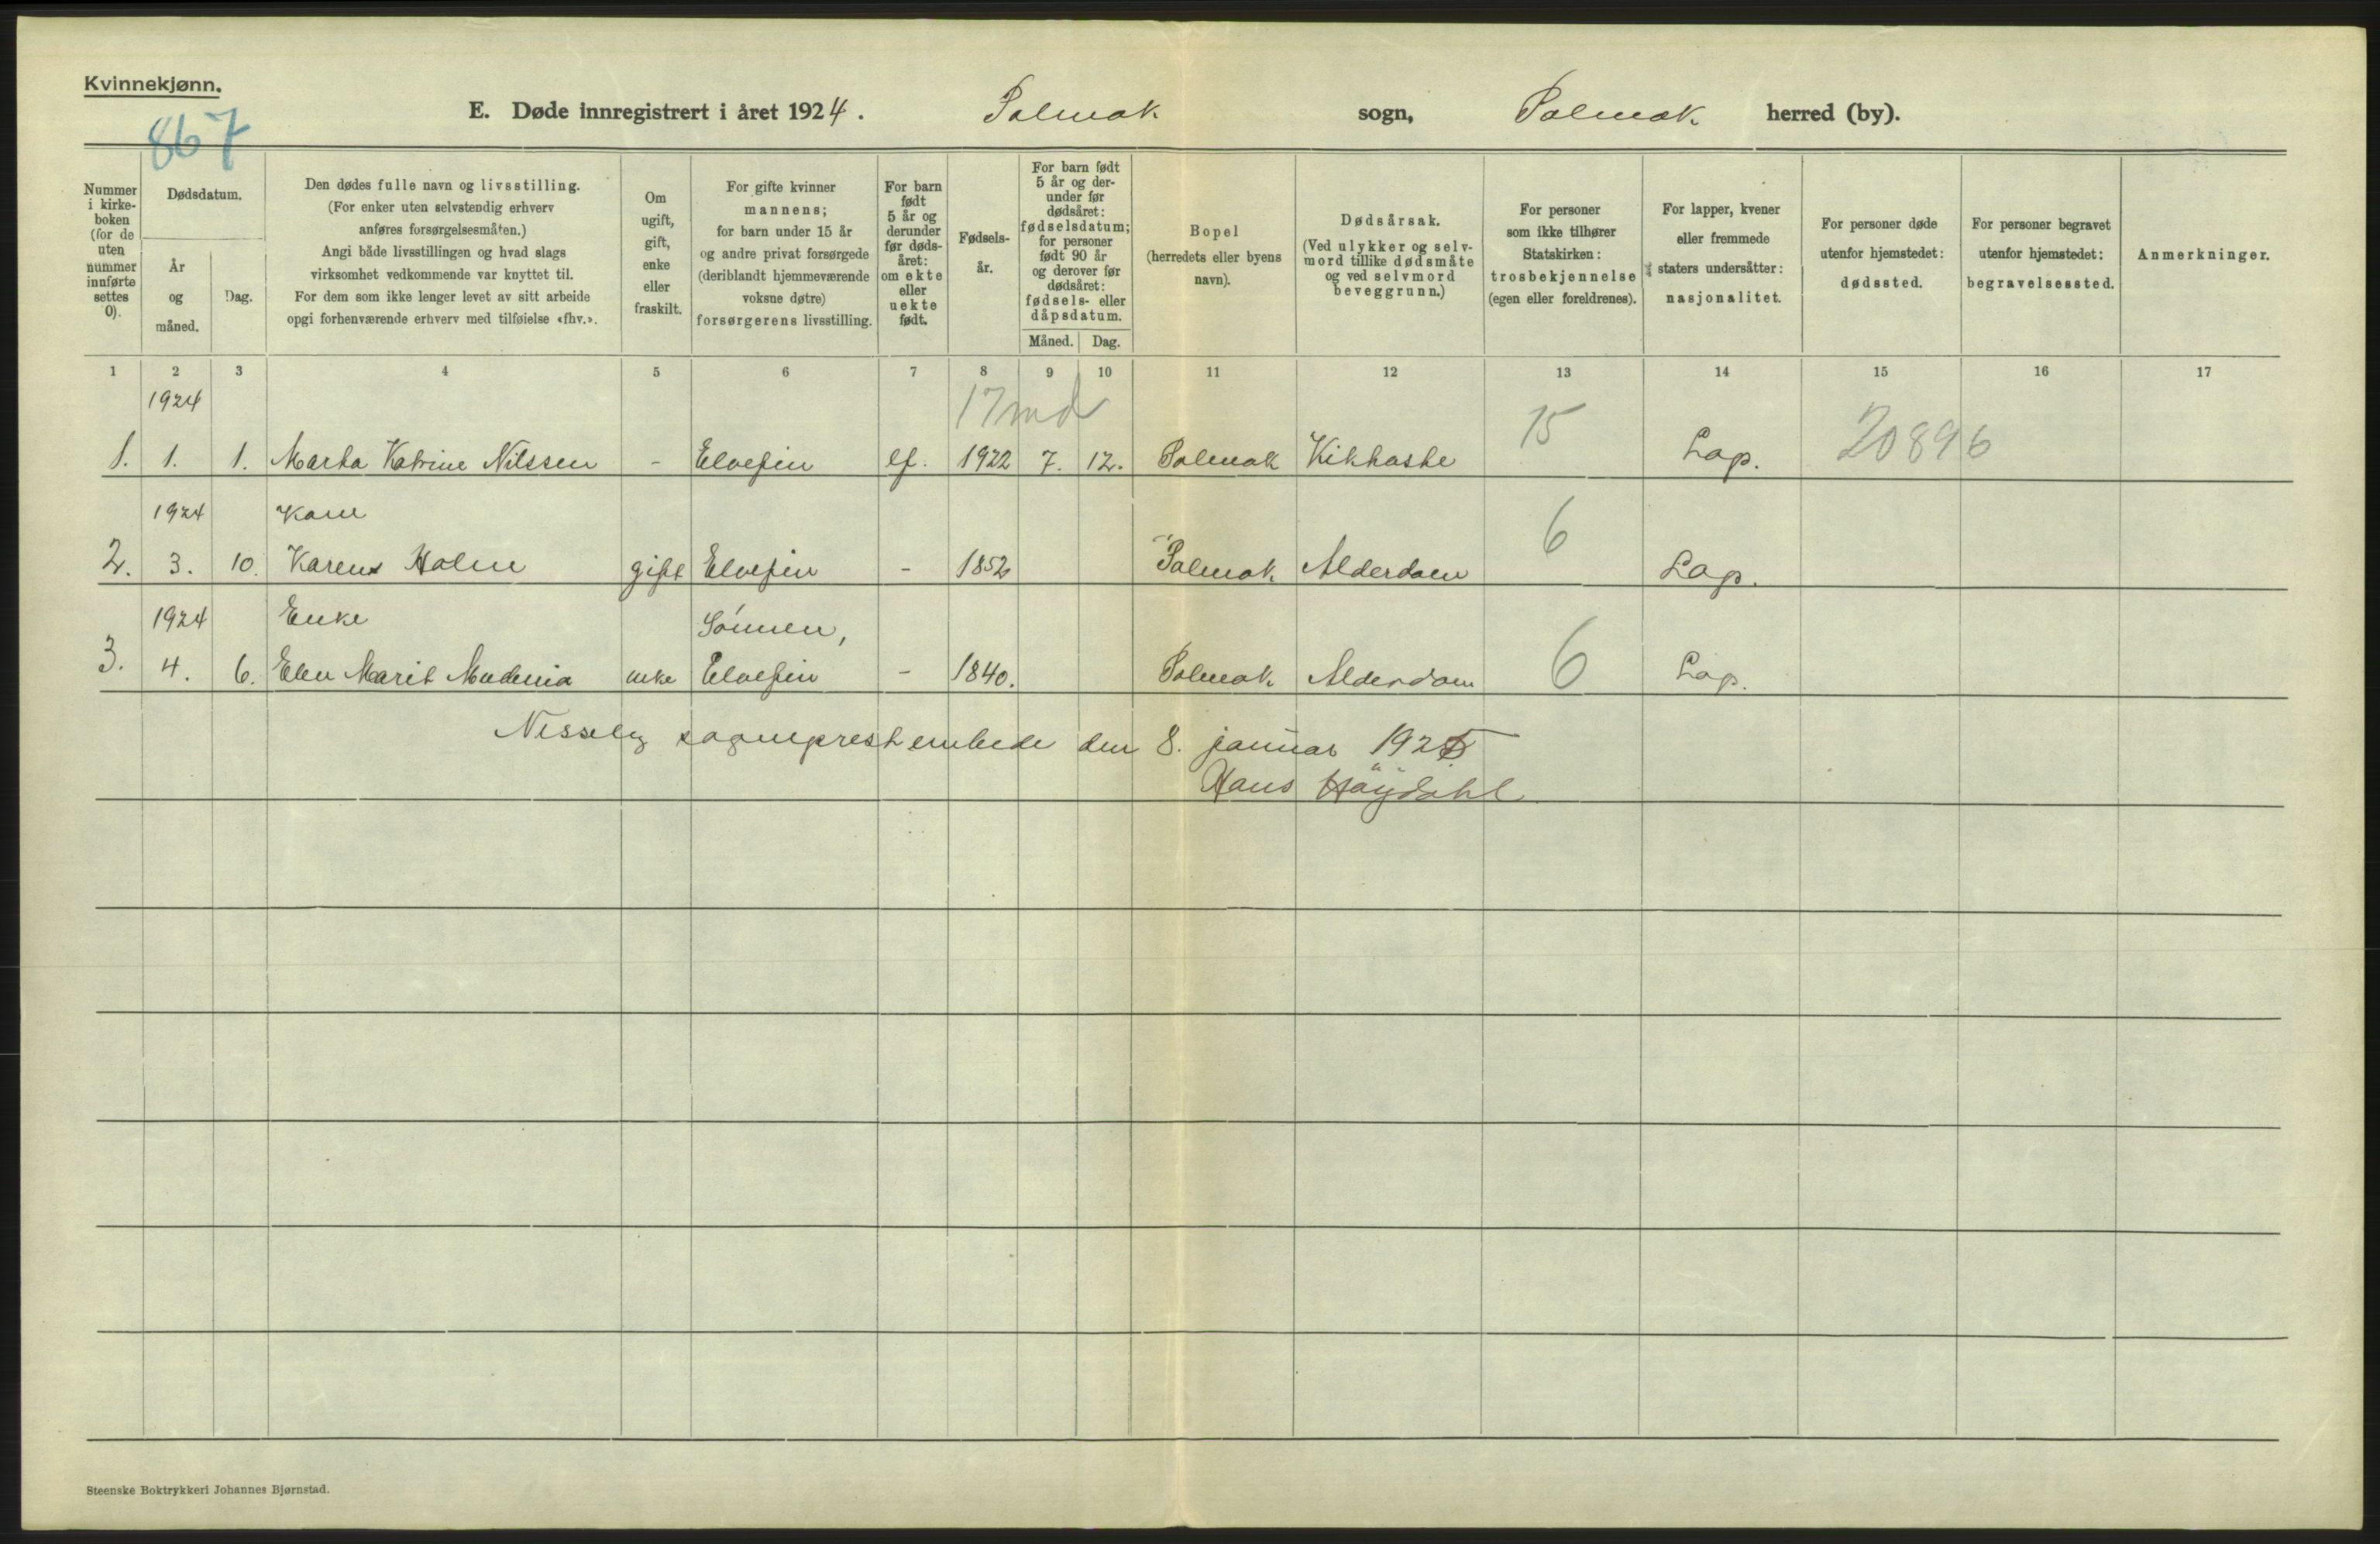 Kvinnekjønn.
867
E. Døde innregistrert i året 1924. Polmak sogn, Polmak herred (by).
Nummer i kirkeboken (for de uten nummer innførte settes 0).
Dødsdatum.
År og måned.
Dag.
Den dødes fulle navn og livsstilling.
(For enker uten selvstendig erhverv
anføres forsørgelsesmåten.)
Angi både livsstillingen og hvad slags
virksomhet vedkommende var knyttet til.
For dem som ikke lenger levet av sitt arbeide
opgi forhenværende erhverv med tilføielse «fhv.».
Om
ugift,
gift,
enke
eller
fraskilt.
For gifte kvinner
mannens;
for barn under 15 år
og andre privat forsørgede
(deriblandt hjemmeværende
voksne døtre)
forsørgerens livsstilling.
For barn
født
5 år og
derunder
før døds-
året:
om ekte
eller
uekte
født.
Fødsels-
år.
For barn født
5 år og der-
under før
dødsåret:
fødselsdatum;
for personer
født 90 år
og derover før
dødsåret:
fødsels- eller
dåpsdatum.
Måned. Dag.
Bopel
(herredets eller byens
navn).
Dødsårsak.
(Ved ulykker og selv-
mord tillike dødsmåte
og ved selvmord
beveggrunn.)
For personer
som ikke tilhører
Statskirken:
trosbekjennelse
(egen eller foreldrenes).
For lapper, kvener
eller fremmede
staters undersåtter:
nasjonalitet.
For personer døde
utenfor hjemstedet:
dødssted.
For personer begravet
utenfor hjemstedet:
begravelsessted.
Anmerkninger.
1 2 3 4 5 6 7 8 9 10 11 12 13 14 15 16 17
1924 17 md 15 20896
1. 1. 1. Marta Katrine Nilssen - Elvefin ef. 1922 7. 12. Polmak Kikhoste Lap.
1924 Kone 6
2. 3. 10. Karen Holm gift Elvefin - 1852 Polmak Alderdom Lap.
1924 Enke Sönnen, 6
3. 4. 6. Elen Marit Mudenia enke Elvefin - 1840. Polmak Alderdom Lap.
Nesseby sogneprestembede den 8. januar 1925
Hans Höydahl
Steenske Boktrykkeri Johannes Bjørnstad.